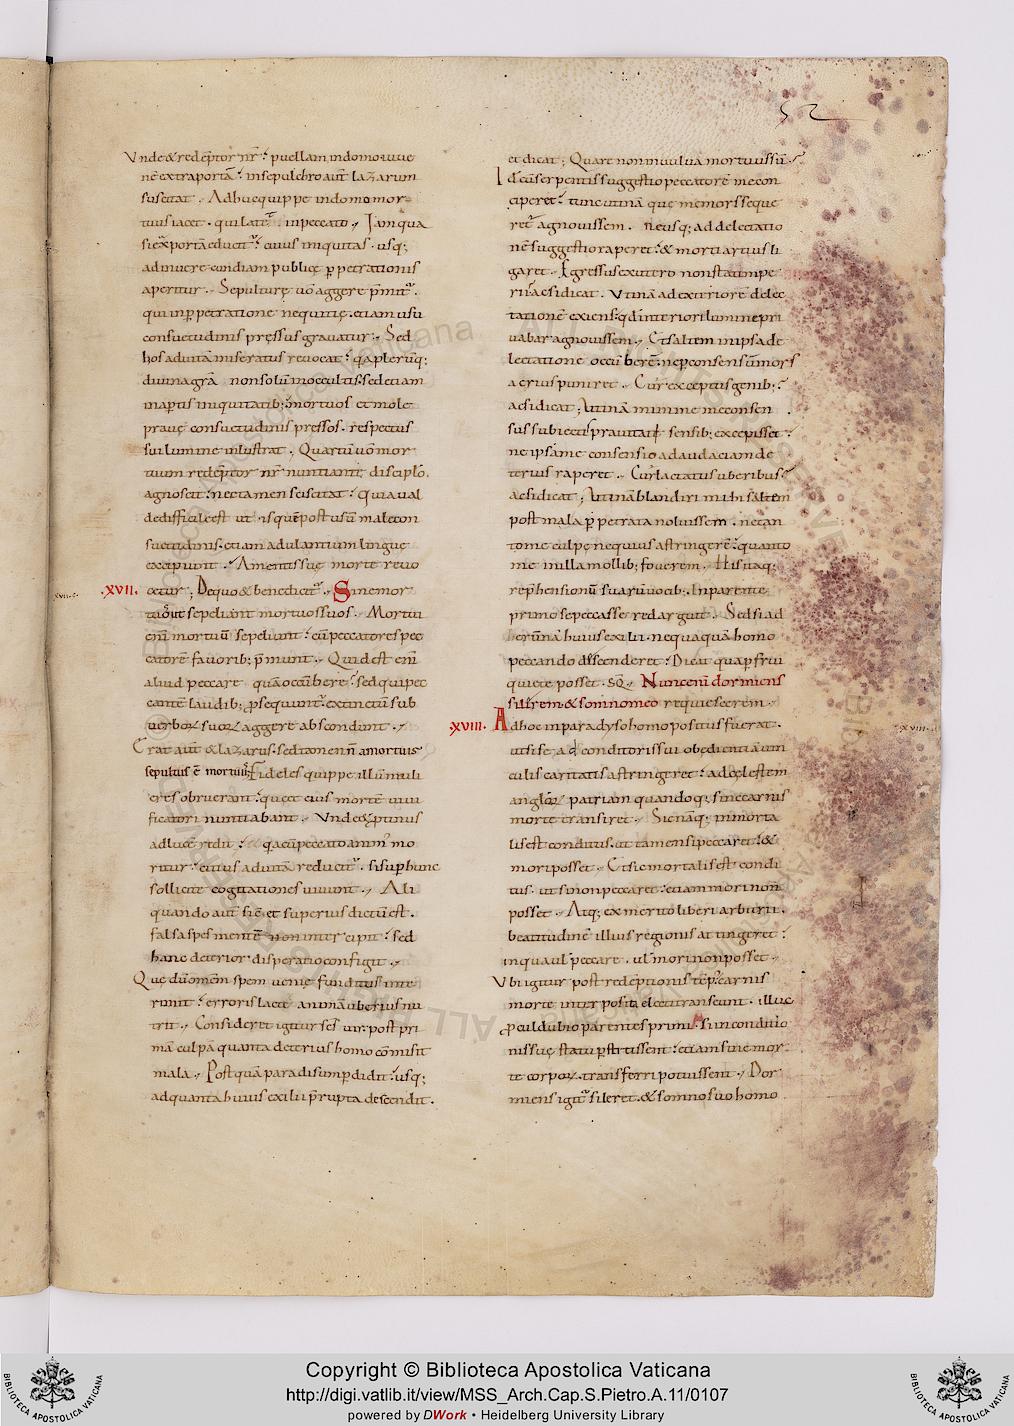 52
Vnde & redēptor nr̄ puellam in domo iuue
nē extra portā. in sepulchro aut̄ lazarum
suscitat. Adhuc quippe in domo mor
tuus iacet. qui latet in peccato. Iam qua
si ex̄ porta educit̄. cuius iniquitas usq;
ad inuerecundiam publicę ꝑpetrationis
aperitur. Sepulturę uō aggere p̄mit̄.
qui in ꝑpetratione nequitię. etiam usu
consuetudinis pressus grauatur. Sed
hos ad uitā miseratus reuocat. q̄a plerūq;
diuina gr̄a non solū in occultis. sed etiam
in aꝑtis iniquitatib; mortuos et mole
prauę consuetudinis pressos. respectus
sui lumine inlustrat. Quartū uō mor
tuum redēptor nr̄ nuntianti discipło.
agnoscit. nec tamen suscitat. quia ual
de difficile est ut is quē post usū malę con
suetudinis. etiam adulantium linguę
excipiunt. A mentis suę morte reuo
.XVII. cetur; De quo & bene dicit̄. Sine mor
tuōs ut sepeliant mortuos suos. Mortui
eni mortuū sepeliunt. cū peccatores pec
catorē fauorib; p̄munt. Quid est eni
aliud peccare quā occūbere. sed qui pec
cantē laudib; ꝓsequunt̄. extinctū sub
uerboꝝ suoꝝ aggere abscondunt.
Erat aut̄ & lazarus. sed tamen n̄ a mortuis
sepultus ē mortuus. Fideles quippe illū muli
eres obruerant. quę et eius mortē uiui
ficatori nuntiabant. Vnde & ꝓtinus
ad lucē rediit. q̄a cū peccato animus mo
ritur. citius ad uitā reducit̄. si suꝑ hunc
sollicitę cogitationes uiuunt. Ali
quando aut̄ sic̄ et superius dictū est.
falsa spes mentē non intercipit. sed
hanc deterior disperatio configit.
Quę dū omēm spem uenię funditus inte
rimit. erroris lacte animā uberius nu
trit. Consideret igitur sc̄s uir. post pri
mā culpā quanta deterius homo cōmisit
mala. Post quā paradisum ꝑdidit. usq;
ad quanta huius exilii p̄rupta descendit.
et dicat; Quare non in uulua mortuus sū.
Id ē cū serpentis suggestio peccatorē me con
ciperet. tunc utinā que me mors seque
ret̄ agnouissem. ne usq; ad delectatio
nē suggestio raperet. & morti artius li
garet. Egressus ex utero non statim pe
rii. Ac si dicat. Vtinā ad exteriorē delec
tationē exiens. qd̄ interiori lumine pri
uabar agnouissem. Et saltem in ipsa de
lectatione occūberē. ne ꝑ consensū mors
acrius puniret. Cur exceptus genib;
ac si dicat; Utinā minime me consen
sus subiectis prauitatis sensib; excepisset.
ne ipsā me consensio ad audaciam de
terius raperet. Cur lactatus uberibus.
Ac si dicat; Utinā blandiri mihi saltem
post mala ꝑpetrata noluissem. ne tan
to me culpę nequius astringerē. quanto
me in illa mollib; fouerem. His itaq;
rephensionū suarū uocib; In parente
primo se peccasse redarguit. Sed si ad
ęrūnā huius exilii. nequaquā homo
peccando descenderet. Dicat qua pace frui
quiete posset. sq̄. Nunc eni dormiens
silerem & somno meo requiescerem.
.XVIII. Ad hoc in paradyso homo positus fuerat.
ut si se ad conditoris sui obędientiā uin
culis caritatis astringeret. ad cęlestem
angl̄oꝝ patriam quandoq; sine carnis
morte transiret. Sic naq; inmorta
lis est conditus. ut tamen si peccaret. &
mori posset. Et sic mortalis est condi
tus. ut si non peccaret. etiam mori non
posset. Atq; ex merito liberi arbitrii.
beatitudinē illius regionis attingeret.
in qua uel peccare. uel mori non posset.
Vbi igitur post redēptionis tēp̄. carnis
morte interposita electi transeunt. illuc
ꝓcul dubio parentes primi. si in conditio
nis suę statu ꝑstitissent. etiam sine mor
te corpoꝝ. transferri potuissent. Dor
miens igit̄ sileret. & somno suo homo
.XVII.
.XVIII.
Copyright © Biblioteca Apostolica Vaticana
http://digi.vatlib.it/view/MSS_Arch.Cap.S.Pietro.A.11/0107
powered by DWork • Heidelberg University Library
BIBLIOTECA APOSTOLICA VATICANA
BIBLIOTECA APOSTOLICA VATICANA